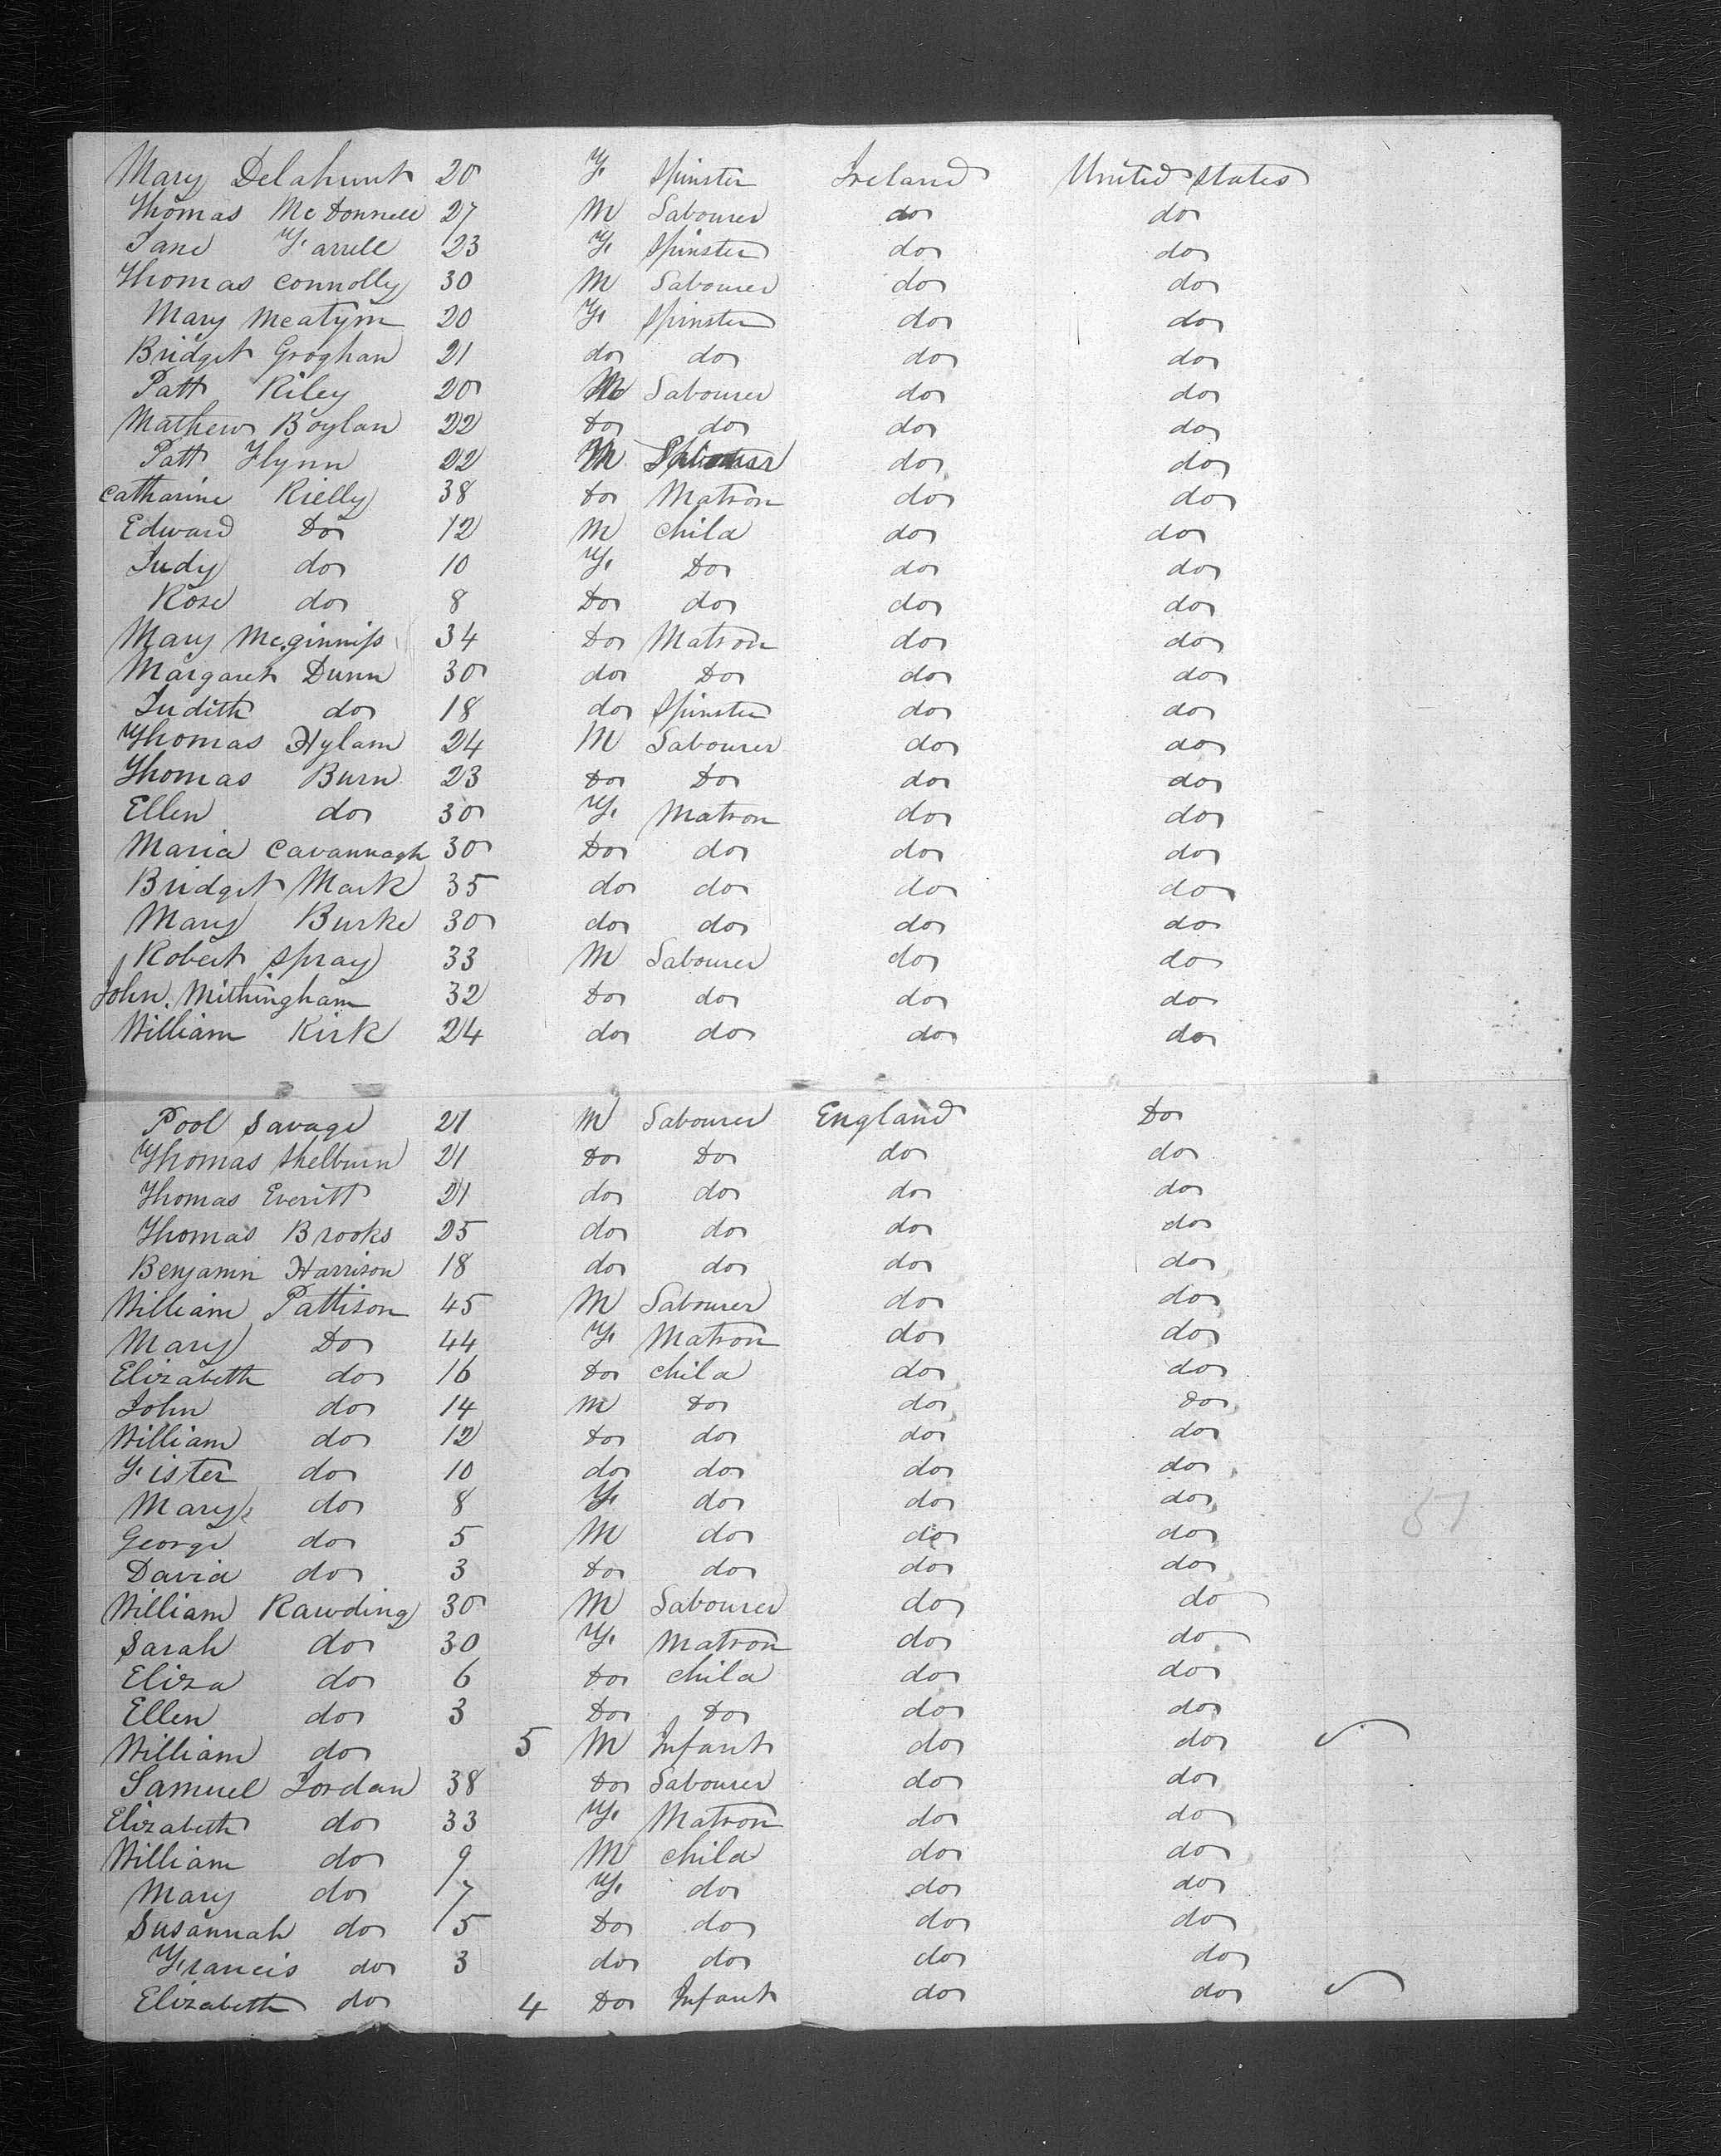 Mary Delahunt 20 F. Spinster Ireland United States
Thomas McDonnell 27 M Labourer do do
Jane Farrell 23 F. Spinster do do
Thomas Connolly 30 M Labourer do do
Mary 20 F. Spinster do do
Bridget Groghan 21 do do do do
Patt Riley 20 M Labourer do do
Mathew Boylan 22 Do do do do
Patt Flynn 22 M do do
Catharine Rielly 38 Do Matron do do
Edward Do 12 M child do do
Judy do 10 F. Do do do
Rose do 8 Do do do do
Mary McGinniss 34 Do Matron do do
Margaret Dunn 30 do Do do do
Judith do 18 do Spinster do do
Thomas Hyland 24 M Labourer do do
Thomas Burn 23 Do Do do do
Ellen do 30 F. Matron do do
Maria Cavannagh 30 Do do do do
Bridget Mark 35 do do do do
Mary Burke 30 do do do do
Robert Spray 33 M Labourer do do
John 32 Do do do do
William Kirk 24 do do do do
Pool Savage 21 M Labourer England Do
Thomas Shelburn 21 Do Do do do
Thomas Everitt 21 do do do do
Thomas Brooks 25 do do do do
Benjamin Harrison 18 do do do do
William Pattison 45 M Labourer do do
Mary Do 44 F. Matron do do
Elizabeth do 16 Do child do do
John do 14 M Do do Do
William do 12 Do do do do
Fister do 10 do do do do
Mary do 8 F. do do do
George do 5 M do do do
David do 3 Do do do do
William Rawding 30 M Labourer do do
Sarah do 30 F. Matron do do
Eliza do 6 Do child do do
Ellen do 3 Do Do do do
William do 5 M Infant do do
Samuel Jordan 38 Do Labourer do do
Elizabeth do 33 F. Matron do do
William do 9 M child do do
Mary do 7 F. do do do
Susannah do 5 Do do do do
Francis do 3 do do do do
Elizabeth do 4 Do Infant do do